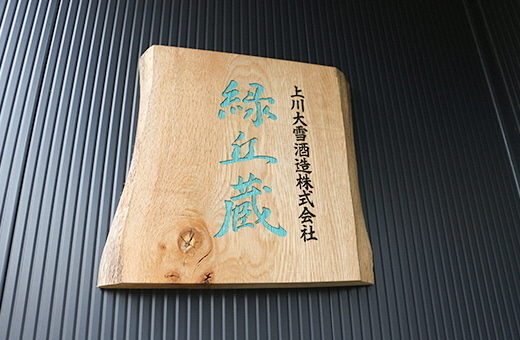 上川大雪酒造株式会社
緑丘蔵